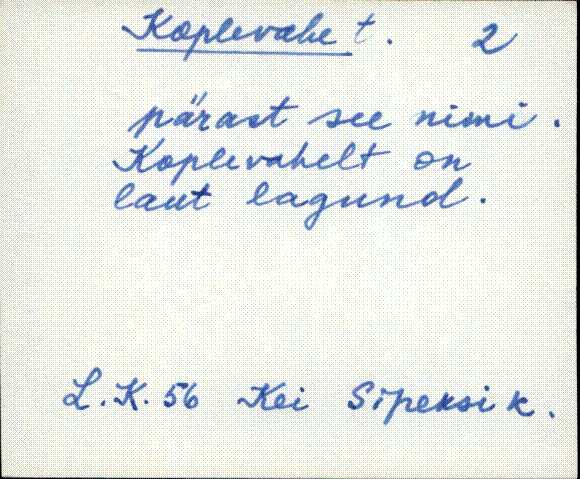 Koplevahe t. 2
pärast see nimi.
Koplevahelt on
laut lagund.
L.K. 56 Kei Sipeksi k.